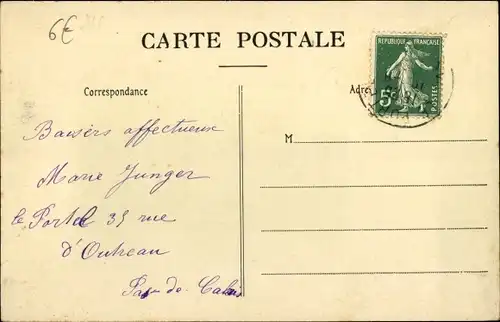 6€
CARTE POSTALE
REPUBLIQUE FRANÇAISE
5c
POSTES
Correspondance
Adre
M
Baisers affectueux
Marie Junger
le Portel 35 rue
d'Outreau
Pas-de-Calais